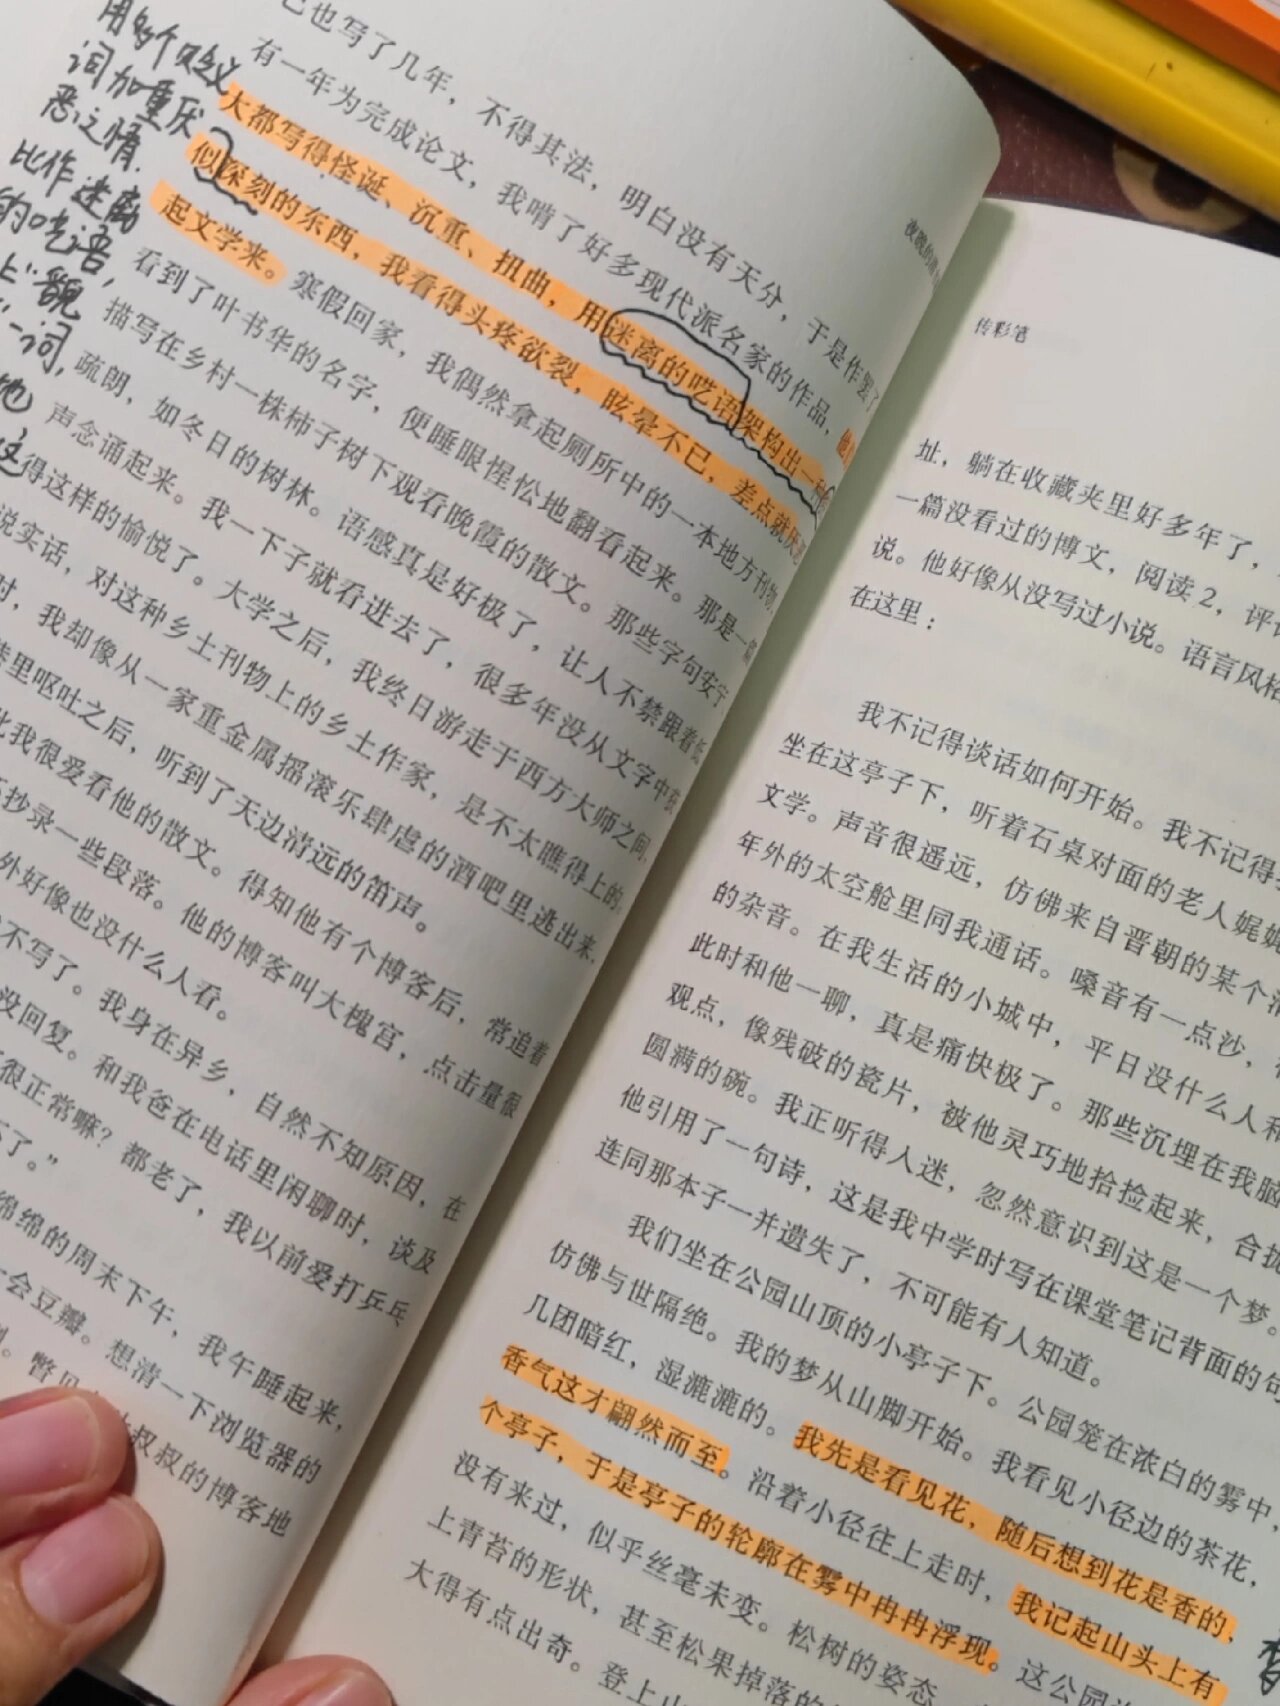 用多个贬义
词加重厌
恶之情.
比作迷离
的呓语,
上"貌
"一词,
地
这
己也写了几年，不得其法，明白没有天分，于是作罢了
有一年为完成论文，我啃了好多现代派名家的作品，他们
大都写得怪诞、沉重、扭曲，用迷离的呓语架构出一种
似深刻的东西，我看得头疼欲裂，眩晕不已，差点就厌恶
起文学来。寒假回家，我偶然拿起厕所中的一本地方刊物，
看到了叶书华的名字，便睡眼惺忪地翻看起来。那是一篇
描写在乡村一株柿子树下观看晚霞的散文。那些字句安宁
疏朗，如冬日的树林。语感真是好极了，让人不禁跟着低
声念诵起来。我一下子就看进去了，很多年没从文字中获
得这样的愉悦了。大学之后，我终日游走于西方大师之间，
说实话，对这种乡土刊物上的乡土作家，是不太瞧得上的。
时，我却像从一家重金属摇滚乐肆虐的酒吧里逃出来，
巷里呕吐之后，听到了天边清远的笛声。
此我很爱看他的散文。得知他有个博客后，常追着
抄录一些段落。他的博客叫大槐宫，点击量很
外好像也没什么人看。
不写了。我身在异乡，自然不知原因，在
没回复。和我爸在电话里闲聊时，谈及
很正常嘛？都老了，我以前爱打乒乓
不了。”
绵绵的周末下午，我午睡起来，
一会豆瓣。想清一下浏览器的
瞥见
叔叔的博客地
传彩笔
址，躺在收藏夹里好多年了，
一篇没看过的博文，阅读2，评
说。他好像从没写过小说。语言风格
在这里：
我不记得谈话如何开始。我不记得
坐在这亭子下，听着石桌对面的老人娓娓
文学。声音很遥远，仿佛来自晋朝的某个清
年外的太空舱里同我通话。嗓音有一点沙，
的杂音。在我生活的小城中，平日没什么人和
此时和他一聊，真是痛快极了。那些沉埋在我脑
观点，像残破的瓷片，被他灵巧地拾捡起来，合拢
圆满的碗。我正听得入迷，忽然意识到这是一个梦。
他引用了一句诗，这是我中学时写在课堂笔记背面的句
连同那本子一并遗失了，不可能有人知道。
我们坐在公园山顶的小亭子下。公园笼在浓白的雾中，
仿佛与世隔绝。我的梦从山脚开始。我看见小径边的茶花，
几团暗红，湿漉漉的。我先是看见花，随后想到花是香的，
香气这才翩然而至。沿着小径往上走时，我记起山头上有
个亭子，于是亭子的轮廓在雾中冉冉浮现。这公园
没有来过，似乎丝毫未变。松树的姿态
上青苔的形状，甚至松果掉落的
大得有点出奇。登上